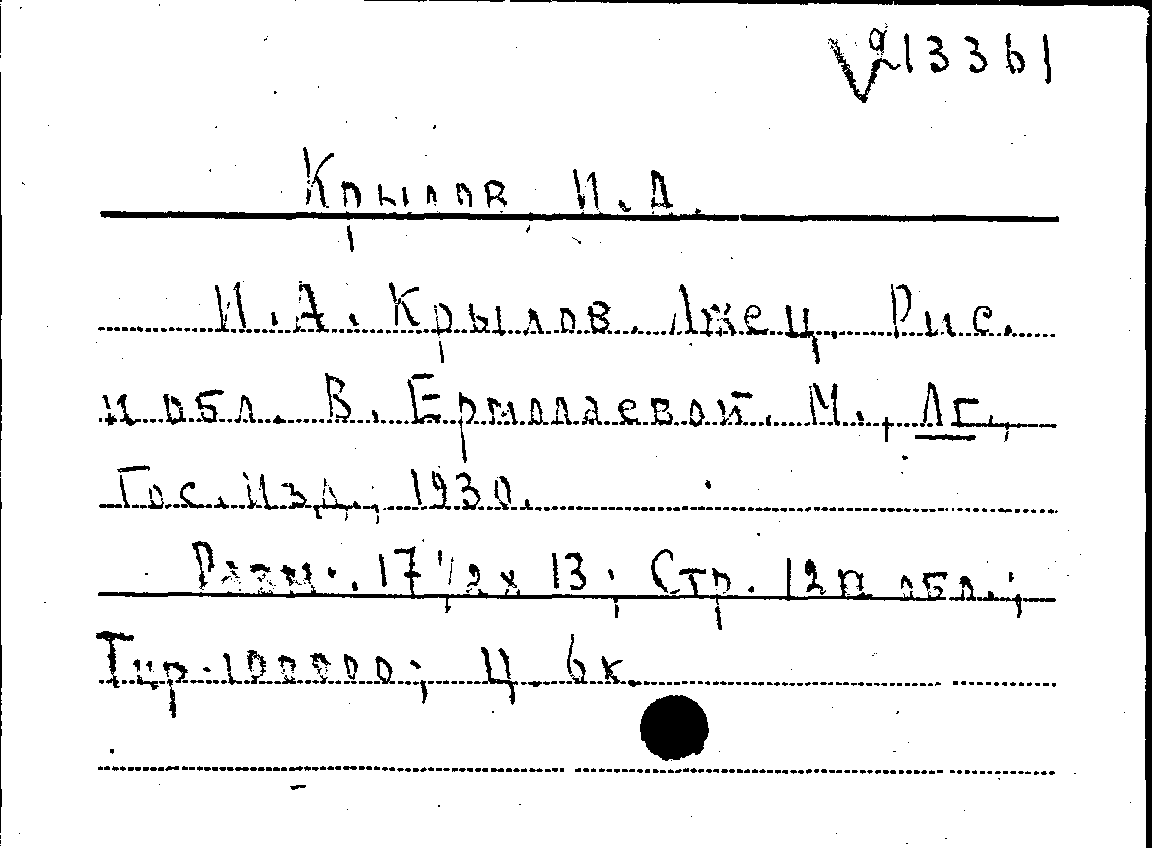 213361
Крылов, И. А.
И. А. Крылов. Лжец. Рис.
и обл. В. Ермолаевой. М., Лг.,
Гос. Изд., 1930.
Разм. 17 1/2 х 13; Стр. 12 и обл.;
Тир. 100000; Ц. 6 к.